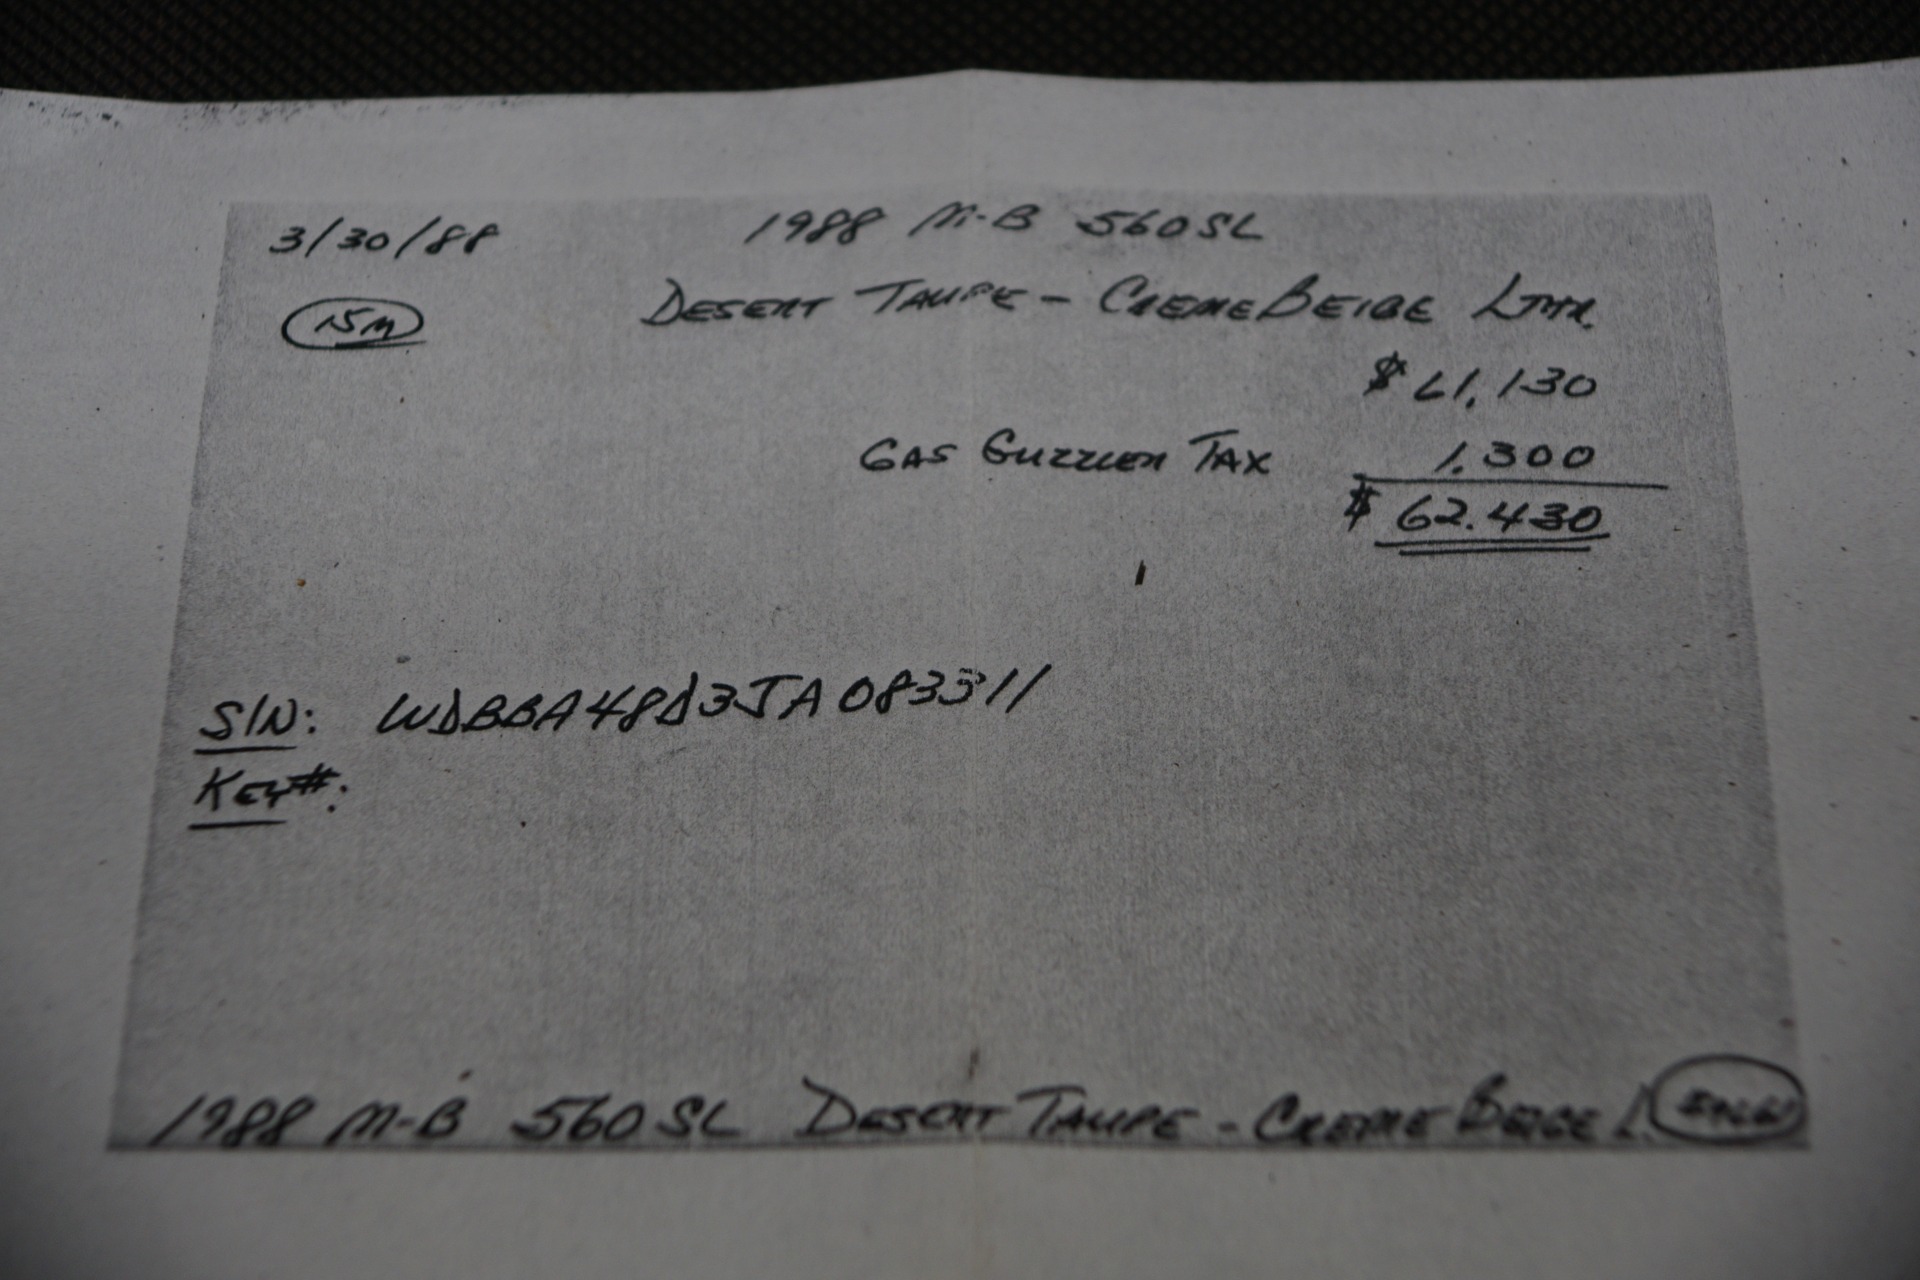 3/30/88 1988 M-B 560SL
15M DESERT TAUPE - CREME BEIGE LTHR.
$61,130
GAS GUZZLER TAX 1.300
$ 62.430
S/N: WDBBA48D3JA083311
KEY#:
1988 M-B 560SL DESERT TAUPE - CREME BEIGE L